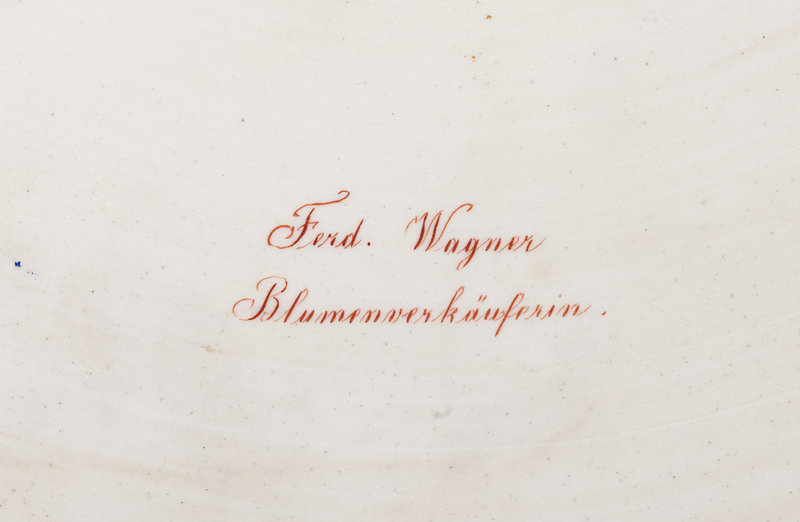 Ferd. Wagner
Blumenverkäuferin.